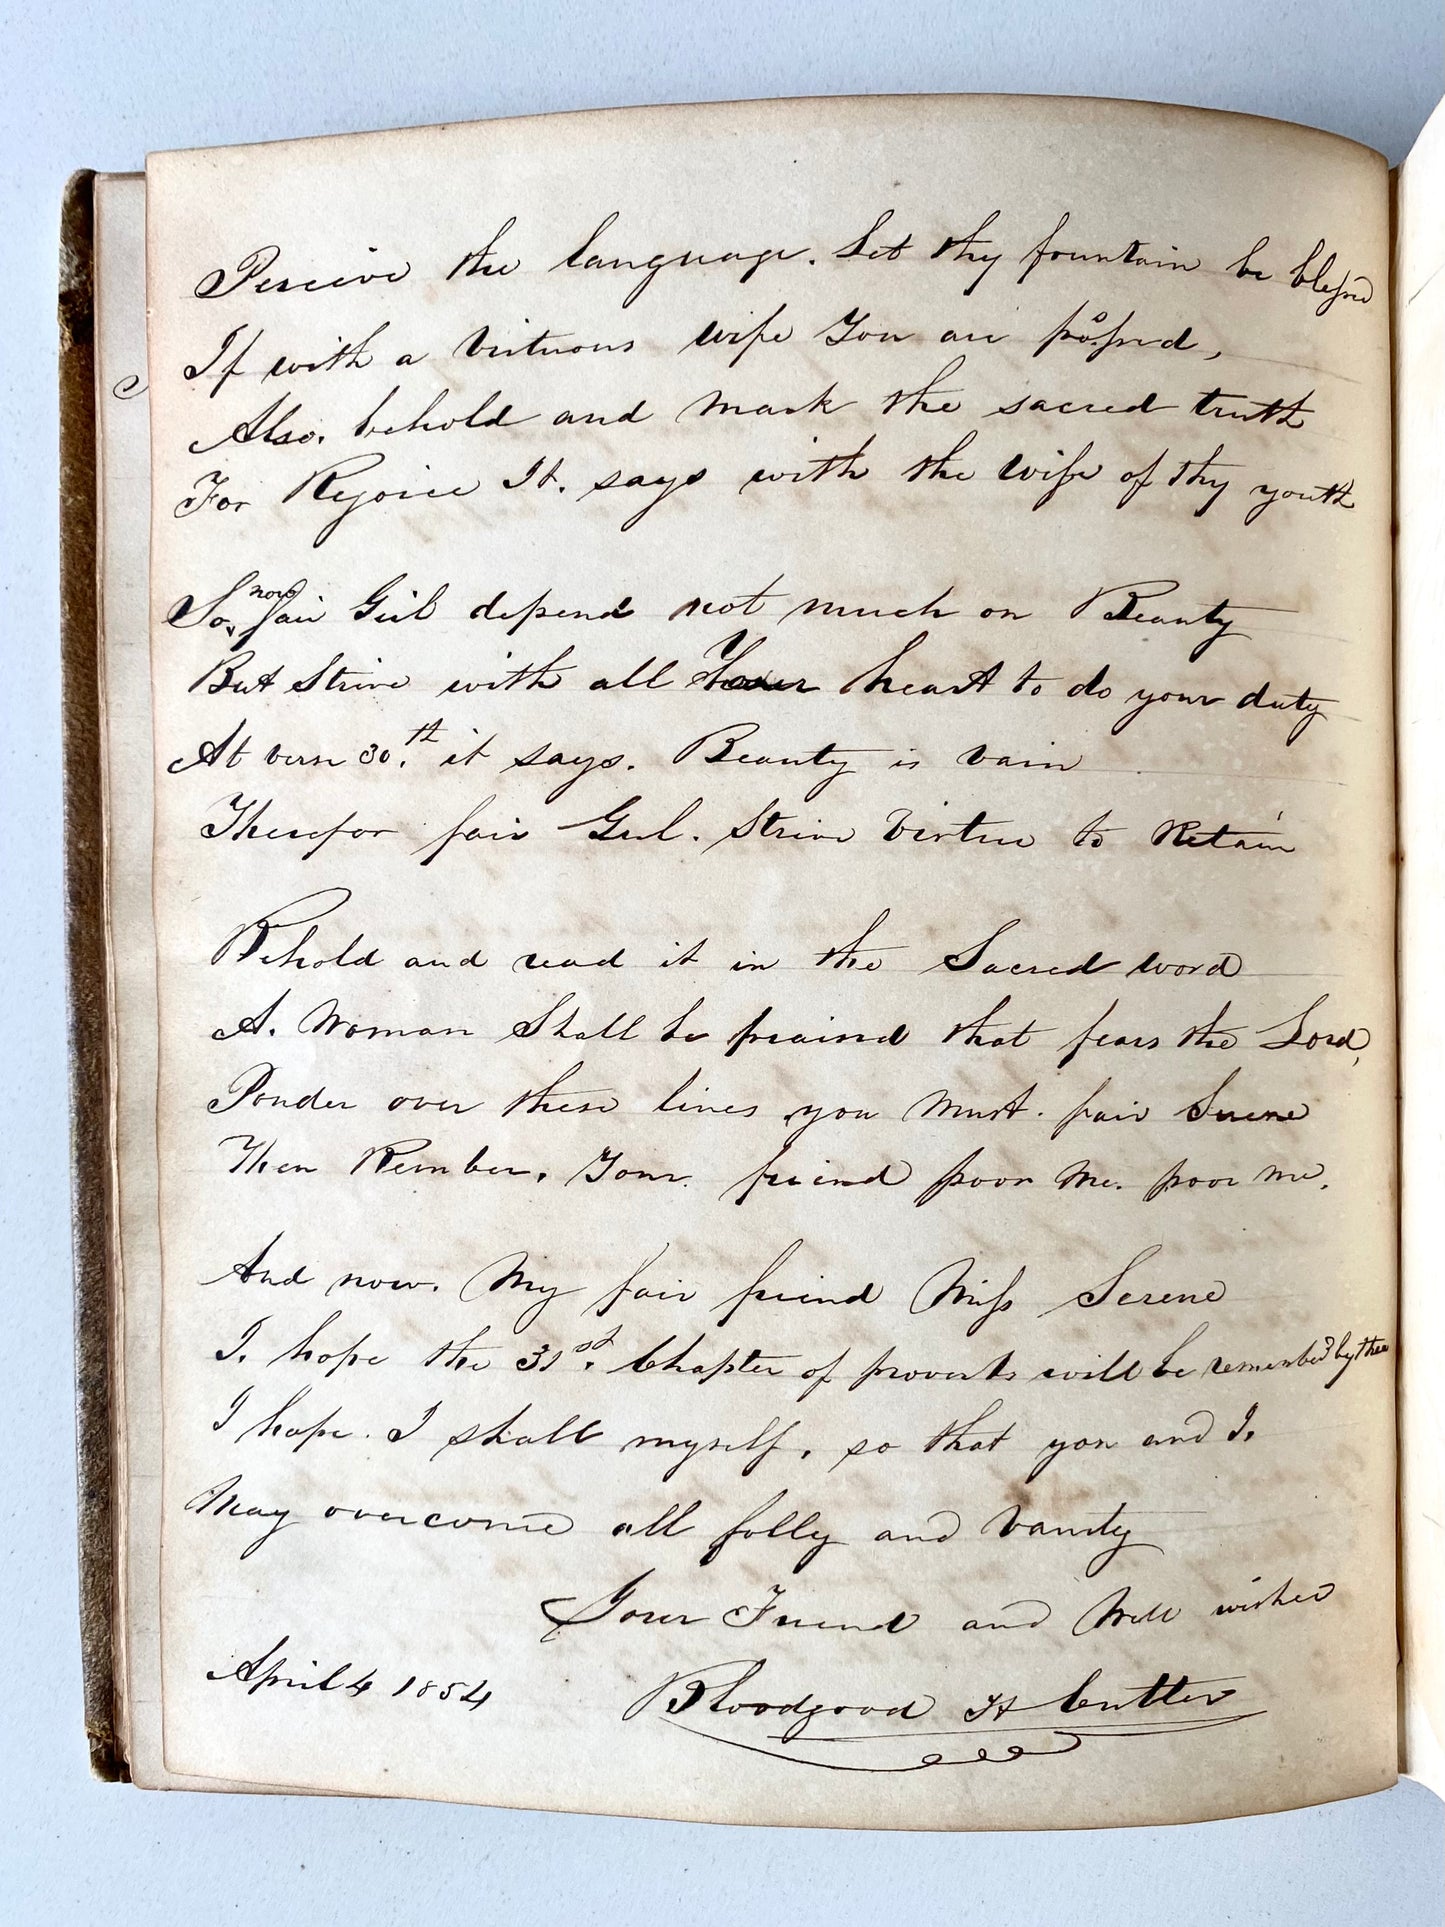 Perceive the language. Let thy fountain be blessed
If with a virtuous wife You are possesed,
Also. behold and mark the sacred truth
For Rejoice It. says with the wife of thy youth
So, now fair Girl depend not much on Beauty
But Strive with all Your heart to do your duty
At verse 30.th it says. Beauty is vain
Therefor fair Girl. Strive Virtue to Retain
Behold and read it in the Sacred word
A. Woman Shall be praised that fears the Lord,
Ponder over these lines you must. fair Serene
Then Rember. Your friend poor me. poor me.
And now. My fair friend Miss Serene
I. hope the 31st. Chapter of proverbs will be remembed by thee
I hope. I shall myself. so that you and I.
May overcome all folly and Vanity
Your Friend and Well wisher
April 4 1854
Bloodgood H Cutter